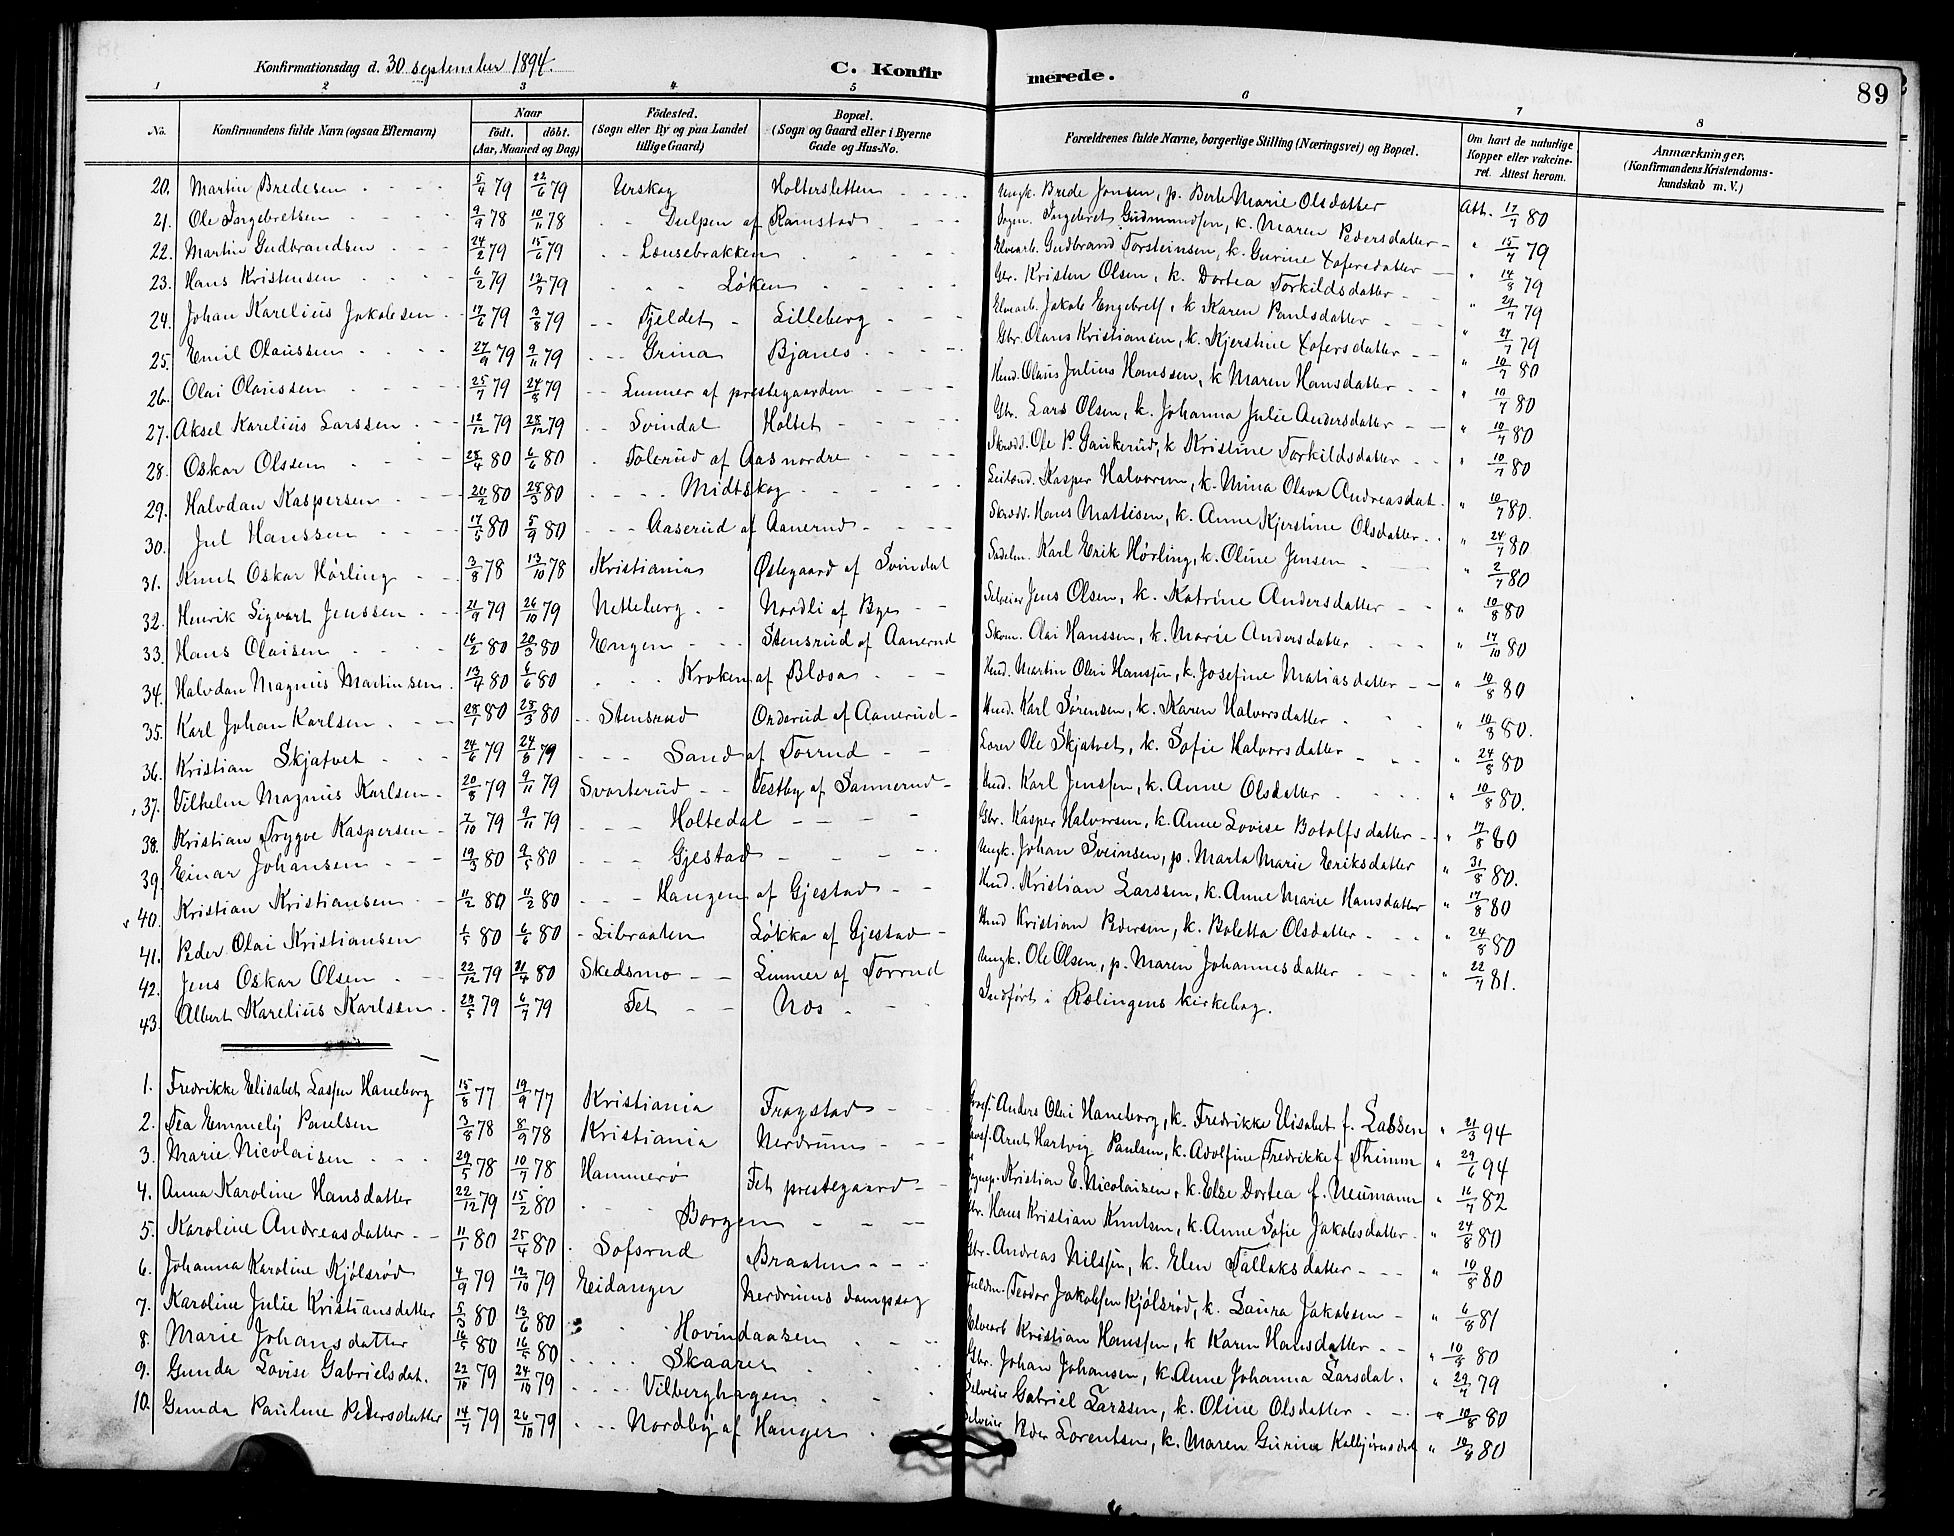 Konfirmationsdag d. 30 september 1894. C. Konfirmerede. 89
1 2 3 4 5 6 7 8
No. Konfirmandens fulde Navn (ogsaa Efternavn) Naar født. døbt. (Aar, Maaned og Dag) Fødested. (Sogn eller By og paa Landet tillige Gaard) Bopæl. (Sogn og Gaard eller i Byerne Gade og Hus-No. Forældrenes fulde Navne, borgerlige Stilling (Næringsvei) og Bopæl. Om havt de naturlige Kopper eller vaccineret. Attest herom. Anmærkninger. (Konfirmandens Kristendomskundskab m. V.)
20. Martin Bredesen 5/4 79 22/6 79 Urskog Holtersletten Ungk. Brede Jensen, p. Berte Marie Olsdatter Att. 17/7 80
21. Ole Ingebretsen 9/9 78 10/11 78 Dulpen af Ramstad Ingebret Gudmundsen, k. Maren Pedersdatter " 15/7 79
22. Martin Gudbrandsen 24/2 79 15/6 79 Lousebrakken Elvearb. Gudbrand Torsteinsen, k. Gurine Xofersdatter " 14/8 79
23. Hans Kristensen 6/2 79 13/7 79 Løken Gbr. Kristen Olsen, k. Dortea Torkildsdatter " 24/7 79
24. Johan Karelius Jakobsen 17/6 79 3/8 79 Fjeldet Lilleberg Elvearb. Jakob Engebretsen, k Karen Paulsdatter " 24/7 79
25. Emil Olaussen 27/9 79 9/11 79 Grina Bjanes Gbr. Olaus Kristiansen, k. Kjerstine Xofersdatter " 10/7 80
26. Olai Olaussen 25/7 79 24/8 79 Lunner af prestegaarden Hmd. Olaus Julius Hanssen, k Maren Hansdatter " 10/7 80
27. Aksel Karelius Larssen 12/12 79 28/12 79 Svindal Holtet Gbr. Lars Olsen, k. Johanna Julie Andersdatter " 10/7 80
28. Oskar Olssen 25/4 80 6/6 80 Tolerud af Aas nordre Skrædd. Ole P. Gaukerud, k Kristine Torkildsdatter " 10/7 80
29. Halvdan Kaspersen 20/2 80 28/3 80 Midtskog Leilænd. Kasper Halvorsen, k. Mina Olava Andreasdat. " 10/7 80.
30. Jul Hanssen 17/5 80 5/9 80 Aaserud af Aanerud Skrædr. Hans Mattisen, k. Anne Kjerstine Olsdatter " 24/7 80
31. Knut Oskar Hörling 3/8 78 13/10 78 Kristiania Østegaard af Svindal Sadelm. Karl Erik Hörling, k. Oline Jensen " 2/7 80
32. Henrik Sigvart Jenssen 21/9 79 26/10 79 Netteberg Nordli af Bye Selveier Jens Olsen, k. Katrine Andersdatter " 10/8 80
33. Hans Olaisen 16/2 80 20/3 80 Engen Stensrud af Aanerud Skom. Olai Hanssen, k. Marie Andersdatter " 17/10 80
34. Halvdan Magnus Martinsen 13/4 80 6/6 80 Kroken af Blosa Hmd. Martin Olai Hanssen, k. Josefine Matiasdatter " 10/8 80
35. Karl Johan Karlsen 28/1 80 28/3 80 Stensrud Orderud af Aanerud Hmd. Karl Sørensen, k. Karen Halvorsdatter " 10/8 80.
36. Kristian Skjatvet 24/6 79 24/8 79 Sand af Torrud Lærer Ole Skjatvet, k. Sofie Halvorsdatter " 24/8 80
37. Vilhelm Magnus Karlsen 20/8 79 9/11 79 Svarterud Vestby af Sannerud Hmd. Karl Jenssen, k. Anne Olsdatter " 10/8 80.
38. Kristian Trygve Kaspersen 7/10 79 9/11 79 Holtedal Gbr. Kasper Halvorsen, k. Anne Lovise Botolfsdatter " 17/8 80
39. Einar Johansen 19/3 80 9/5 80 Gjestad Ungk. Johan Sveinsen, p. Marta Marie Eriksdatter " 31/8 80.
40. Kristian Kristiansen 11/2 80 11/2 80 Haugen af Gjestad Hmd. Kristian Larssen, k. Anne Marie Hansdatter " 17/8 80
41. Peder Olai Kristiansen 1/5 80 6/6 80 Libraaten Løkka af Gjestad Hmd Kristian Pedersen, k. Boletta Olsdatter " 24/8 80
42. Jens Oskar Olsen 22/12 79 21/4 80 Skedsmo Lunner af Torrud Ungk. Ole Olsen, p. Maren Johannesdatter " 22/7 81.
43. Albert Karelius Karlssen 28/5 79 6/7 79 Fet Nos Indført i Rælingens kirkebog.
1. Fredrikke Elisabet Lassen Haneborg 15/8 77 19/9 77 Kristiania Frogstad Anders Olai Haneborg, k. Fredrikke Elisabet f. Lassen " 21/3 94
2. Tea Emmely Paulsen 3/8 78 8/9 78 Kristiania Nerdrum Arnt Hartvig Paulsen, k. Adolfine Fredrikke f Thimm " 29/6 94
3. Marie Nicolaisen 29/5 78 10/7 78 Hammerø Fet prestegaard Kristian E. Nicolaisen, k. Else Dortea f. Neumann " 16/7 82
4. Anna Karoline Hansdatter 22/12 79 15/2 80 Borgen Gbr. Hans Kristian Knutsen, k. Anne Sofie Jakobsdatter " 24/8 80
5. Karoline Andreasdatter 11/1 80 25/4 80 Sofsrud Braaten Gbr. Andreas Nilssen, k. Elen Tallaksdatter " 10/8 80
6. Johanna Karoline Kjölsrød 4/9 79 12/10 79 Eidanger Nerdrums dampsag Fuldm. Teodor Jakobsen Kjölsrød, k. Laura Jakobsen " 6/8 81
7. Karoline Julie Kristiansdatter 5/3 80 13/6 80 Hovindaasen Elvearb Kristian Hanssen, k Karen Hansdatter " 10/8 80
8. Marie Johansdatter 16/5 80 16/5 80 Skaarer Gbr. Johan Johansen, k. Anne Johanna Larsdat. " 29/4 79
9. Gunda Lovise Gabrielsdat. 22/10 79 24/10 79 Vilberghagen Selveier Gabriel Larssen, k. Oline Olsdatter " 10/8 80
10. Gunda Pauline Pedersdatter 14/7 79 26/10 79 Nordby af Hanger Selveier Peder Lorentsen, k. Maren Gurine Kolbjørnsdat " 10/8 80